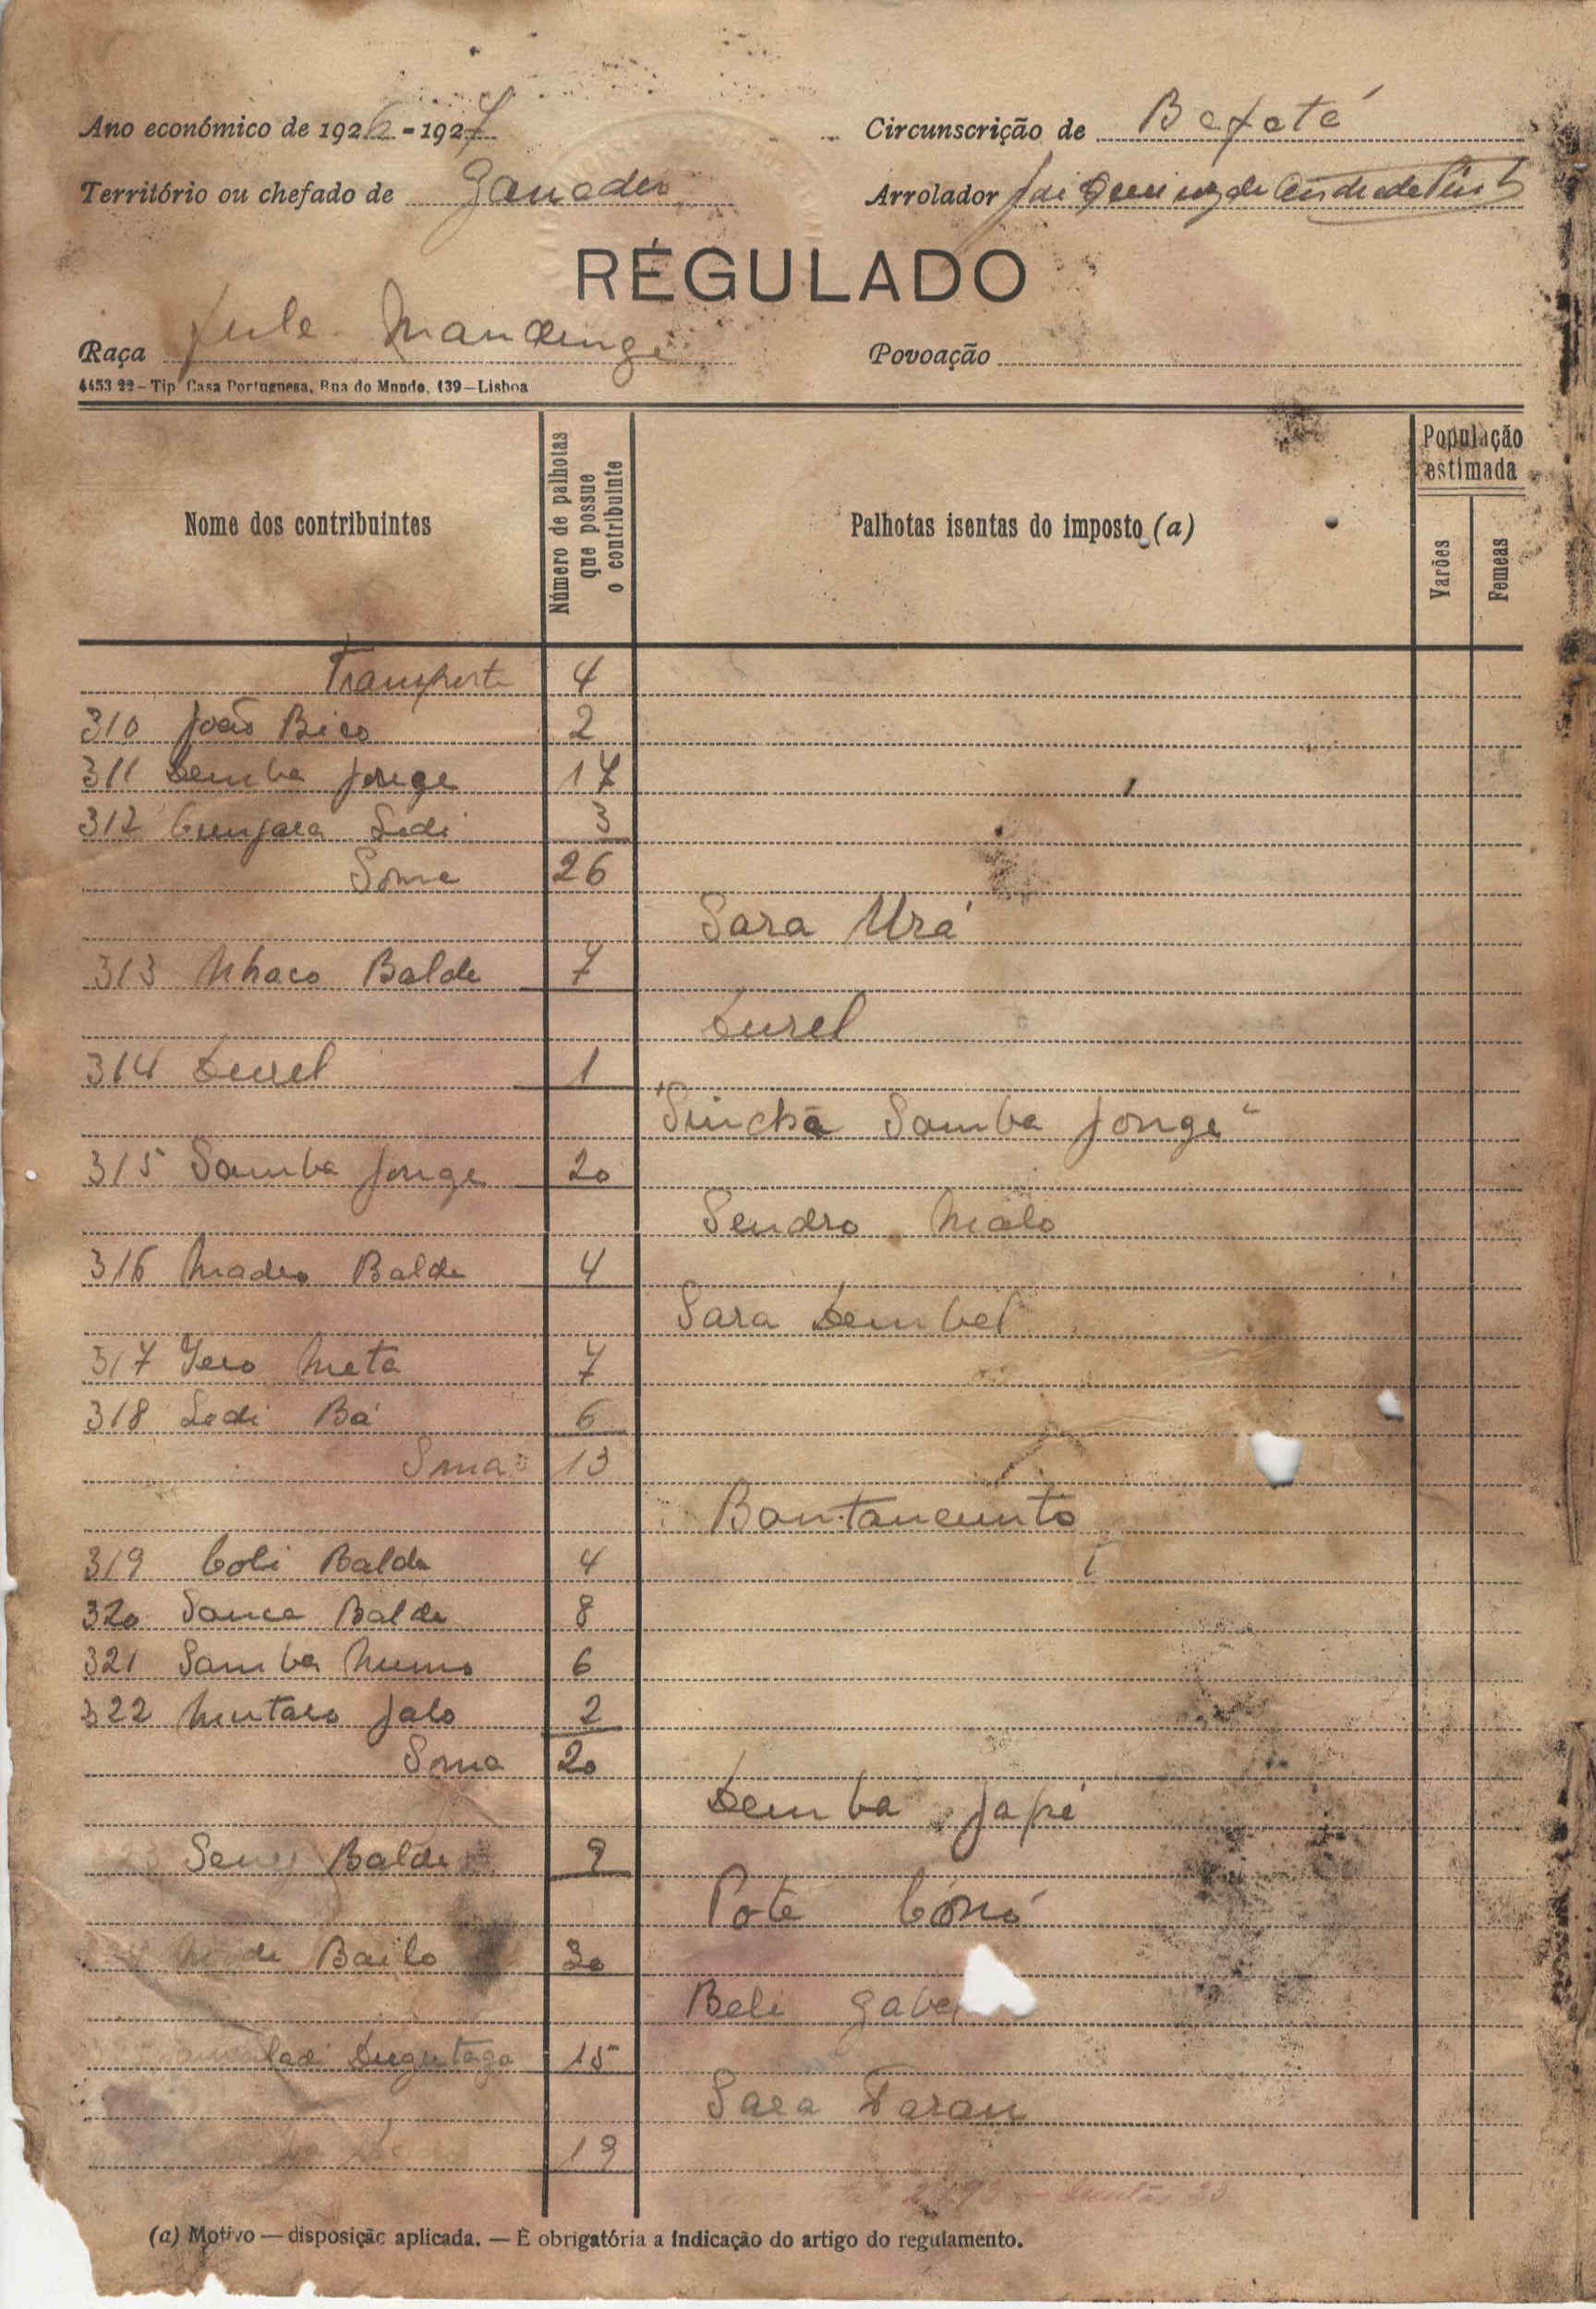 Ano económico de 1926-1927
Circunscrição de Bafatá
Território ou chefado de Ganadu
Arrolador de
RÉGULADO
Raça Fula Mandinga
Povoação
4453 22–Tip Casa Portuguesa, Rua do Mundo, 139—Lisboa
Nome dos contribuintes
Número de palhotas que possue o contribuinte
Palhotas isentas do imposto (a)
População estimada
Varões
Femeas
Transporte 4
310 João Bico 2
311 Demba Jonge 17
312 Cunjara Ledi 3
Soma 26
Sara Urá
313 Nhaco Balde 7
Durel
314 Durel 1
"Sinchã Samba Jonge"
315 Samba Jonge 20
Sendro Malo
316 Madeo Balde 4
Sara Dembel
317 Iero Meta 7
318 Ledi Bá 6
Soma 13
Bantancunto
319 Coli Balde 4
320 Sanca Balde 8
321 Samba Numo 6
322 Mutaro Jalo 2
Soma 20
Demba Japé
Balde 9
Pote Cónó
Bailo 30
Beli
Dugutaga 15
Sara Faran
19
(a) Motivo — disposição aplicada. — É obrigatória a indicação do artigo do regulamento.